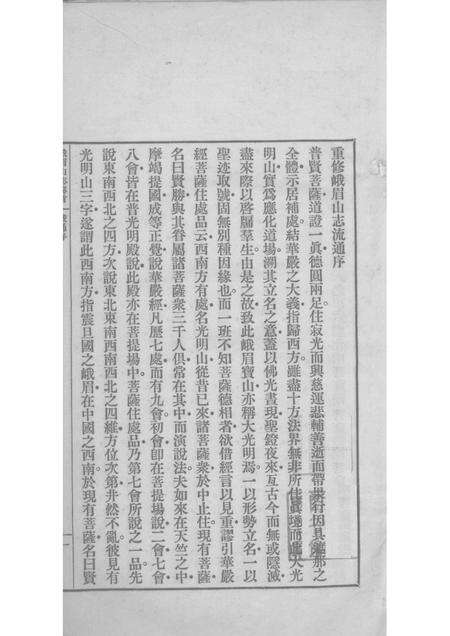 重修峨眉山志流通序
普賢菩薩道證一眞德圓兩足住寂光而興慈運悲輔善逝而帶果行因具
全體示居補處結華嚴之大義指歸西方雖盡十方法界無非所住而大光
明山實爲應化道場溯其立名之意蓋以佛光晝現聖燈夜來亙古今而無或隱滅
盡來際以啓牖羣生由是之故致此峨眉寶山亦稱大光明焉一以形勢立名一以
聖迹取號固無別種因緣也而一班不知菩薩德相者欲借經言以見重謬引華嚴
經菩薩住處品云西南方有處名光明山從昔已來諸菩薩衆於中止住現有菩薩
名曰賢勝與其眷屬諸菩薩衆三千人俱常在其中而演說法夫如來在天竺之中
摩竭提國成等正覺說華嚴經凡歷七處而有九會初會卽在菩提場說二會七會
八會皆在普光明殿說此殿亦在菩提場中菩薩住處品乃第七會所說之一品先
說東南西北之四方次說東北東南西南西北之四維方位次第井然不亂彼見有
光明山三字遂謂此西南方指震旦國之峨眉在中國之西南於現有菩薩名曰賢